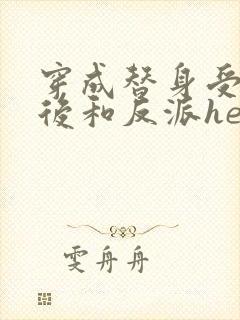 穿成替身受
後和反派he
雯舟舟